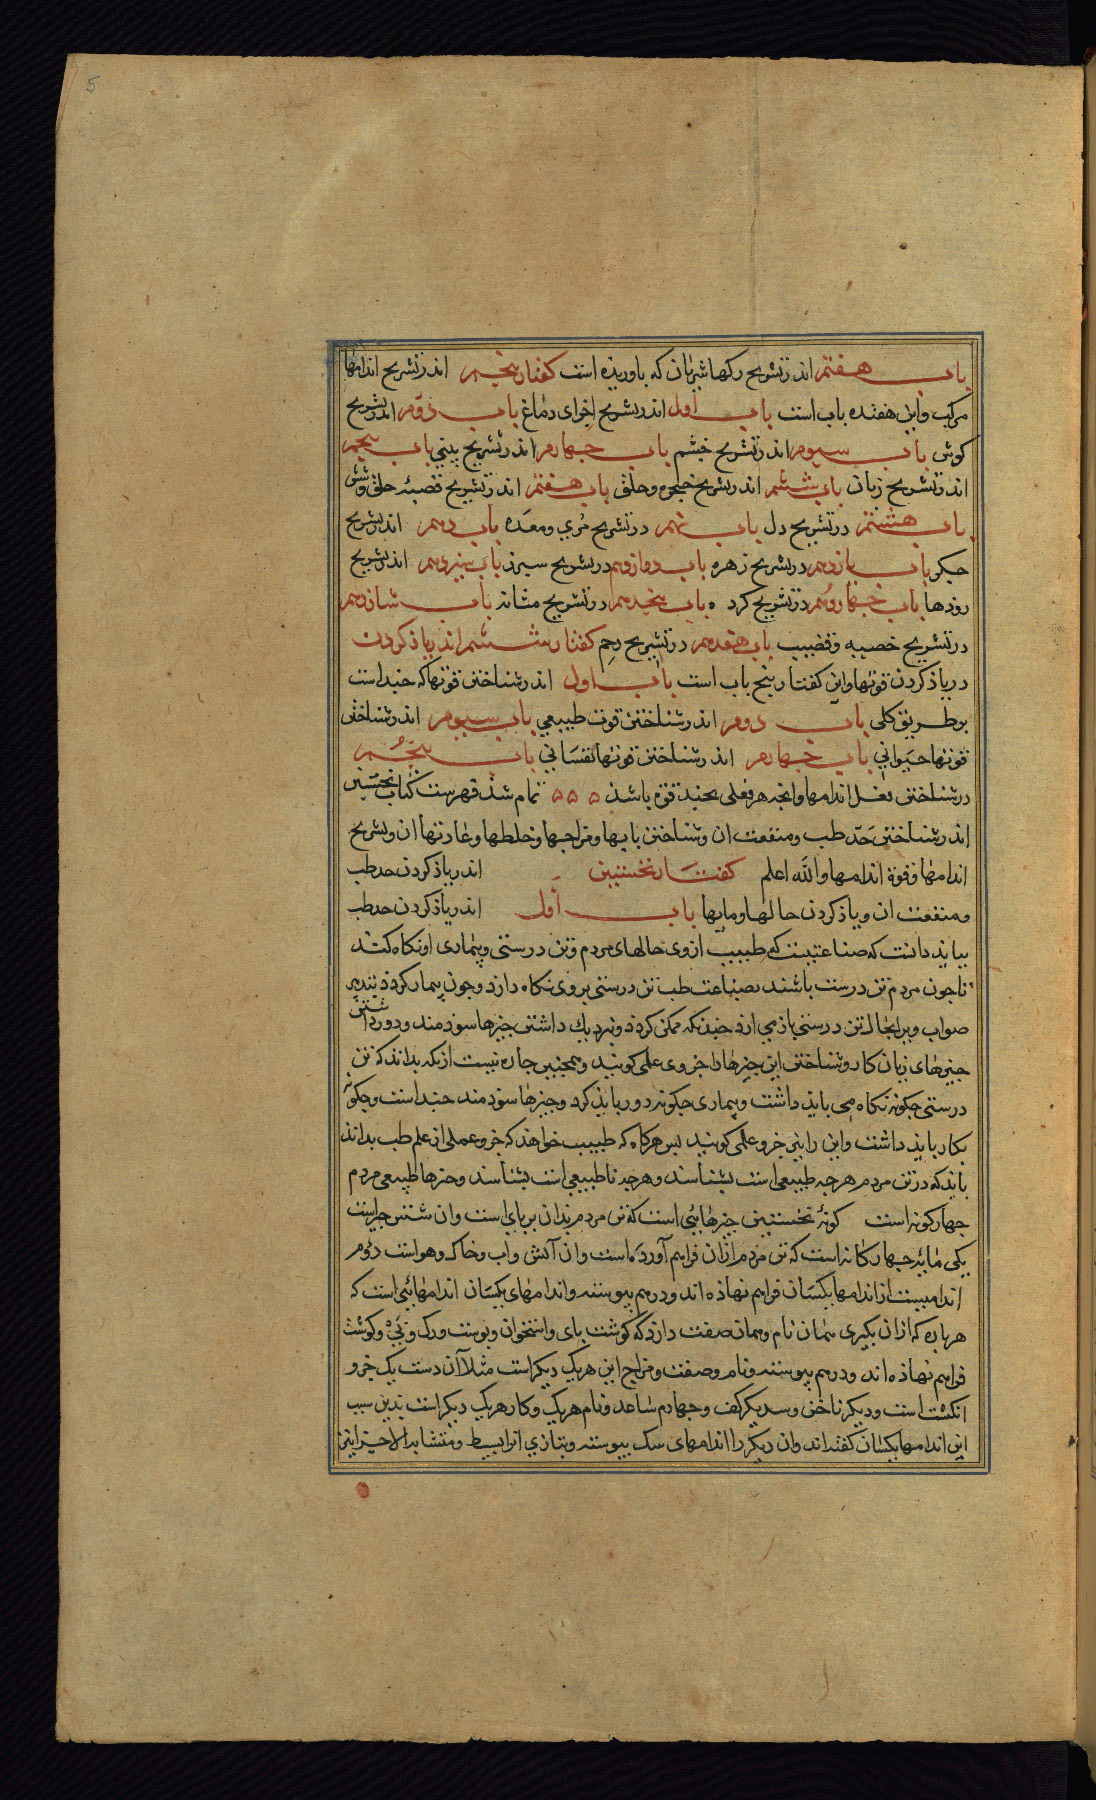 5
باب هفتم اندر تشریح رکها شریان که باوریده است کفتار پنجم اندر تشریح اندامها
مرکب واین هفده باب است باب اول اندر تشریح اجزای دماغ باب دوم اندر تشریح
کوش باب سیوم اندر تشریح خشم باب جهارم اندر تشریح بینی باب پنجم
اندر تشریح زبان باب ششم اندر تشریح حنجره وحلق باب هفتم اندر تشریح قصبه حلق وشش
باب هشتم در تشریح دل باب نهم در تشریح مری ومعده باب دهم اندر تشریح
جیکر باب یازدهم در تشریح زهره باب دوازدهم در تشریح سپرز باب سیزدهم اندر تشریح
روذها باب جهاردهم در تشریح کرد ه باب پنجدهم در تشریح مثانه باب شانزدهم
در تشریح خصیه وقضیب باب هفدهم در تشریح رحم کفتار ششم اندر یاذ کردن
در یاذ کردن قوتها واین کفتار پنج باب است باب اول اندر شناختن قوتها که جنداست
بر طریق کلی باب دوم اندر شناختن قوت طبیعی باب سیوم اندر شناختن
قوتها حیوانی باب جهارم اندر شناختن قوتها نفسانی باب پنجم
در شناختن فعل اندامها وانجه هر فعلی بجند قوه باشذ ۵ ۵ ۵ تمام شذ فهرست کتاب نخستین
اندر شناختن حد طب ومنفعت ان وشناختن مایها ومزاجها وخلطها وعادتها ان وتشریح
اندامها وقوة اندامها والله اعلم کفتار نخستین اندر یاذ کردن حد طب
ومنفعت ان ویاذ کردن حالها ومایها باب اول اندر یاذ کردن حد طب
بباید دانست که صناعتیست که طبیب از وی حالهای مردم وتن درستی وبیماری او نکاه کند
تا جون مردم تن درست باشند بصناعت طب تن درستی بر وی نکاه دارذ وجون بیمار کردذ تدبیر
صواب ویرا بحال تن درستی باز می ارد جندن که ممکن کردد ونزدیك داشتن جیزها سوذمند ودور داشتن
جیزهای زیان کار وشناختن این جیزها را جزوی علمی کویند وهمجنین جاره نیست ازبکه بداند که تن
درستی جکونه نکاه می بایذ داشت وبیماری جکونه دور بایذ کرد وجیزها سوذمند جنداست وجکونه
بکار بایذ داشت واین را نیز جزو علمی کویند بس هرکاه که طبیب خواهذ که جزو عملی از علم طب بداند
بایذ که در تن مردم هرجه طبیعی است بشناسد وهرجه نا طبیعی است بشناسد وجیزها طبیعی مردم
جهار کونه است کونهٔ نخستین جیزهائی است که تن مردم بذان بر پای است وان شش جیزاست
یکی مایه جهار کانه است که تن مردم از ان فراهم آورده است وان آتش واب وخاک وهو است دوم
اندامیست از اندامها یکسان فراهم نهاذه اند ودرهم پیوسته واندامهای یکسان اندامهائی است که
هر باره که از ان بکیری همان نام وهمان صفت دارذ که کوشت بای واستخوان وپوست ورك وپی وکوشت
فراهم نهاذه اند ودرهم پیوسته ونام وصفت ومزاج این هریک دیکر است مثلا آن دست یک جزو
انکشت است ودیکر ناخن وسدیکر کف وجهارم ساعد ونام هریک وکار هریک دیکر است بدین سبب
این اندامها یکسان کفته اند وان دیکر را اندامهای پیوسته وبتازی انرا بسیط ومتشابه الاجزا